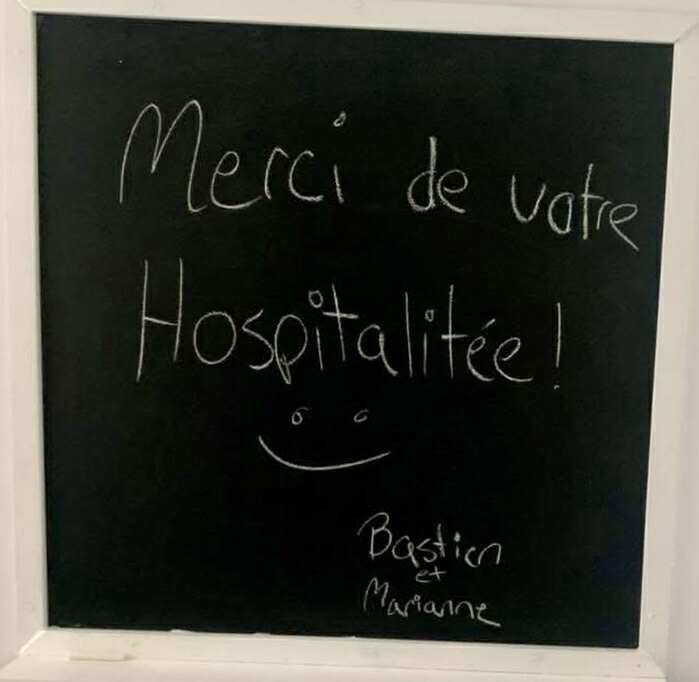 Merci de votre
Hospitalitée!
Bastien
et
Marianne